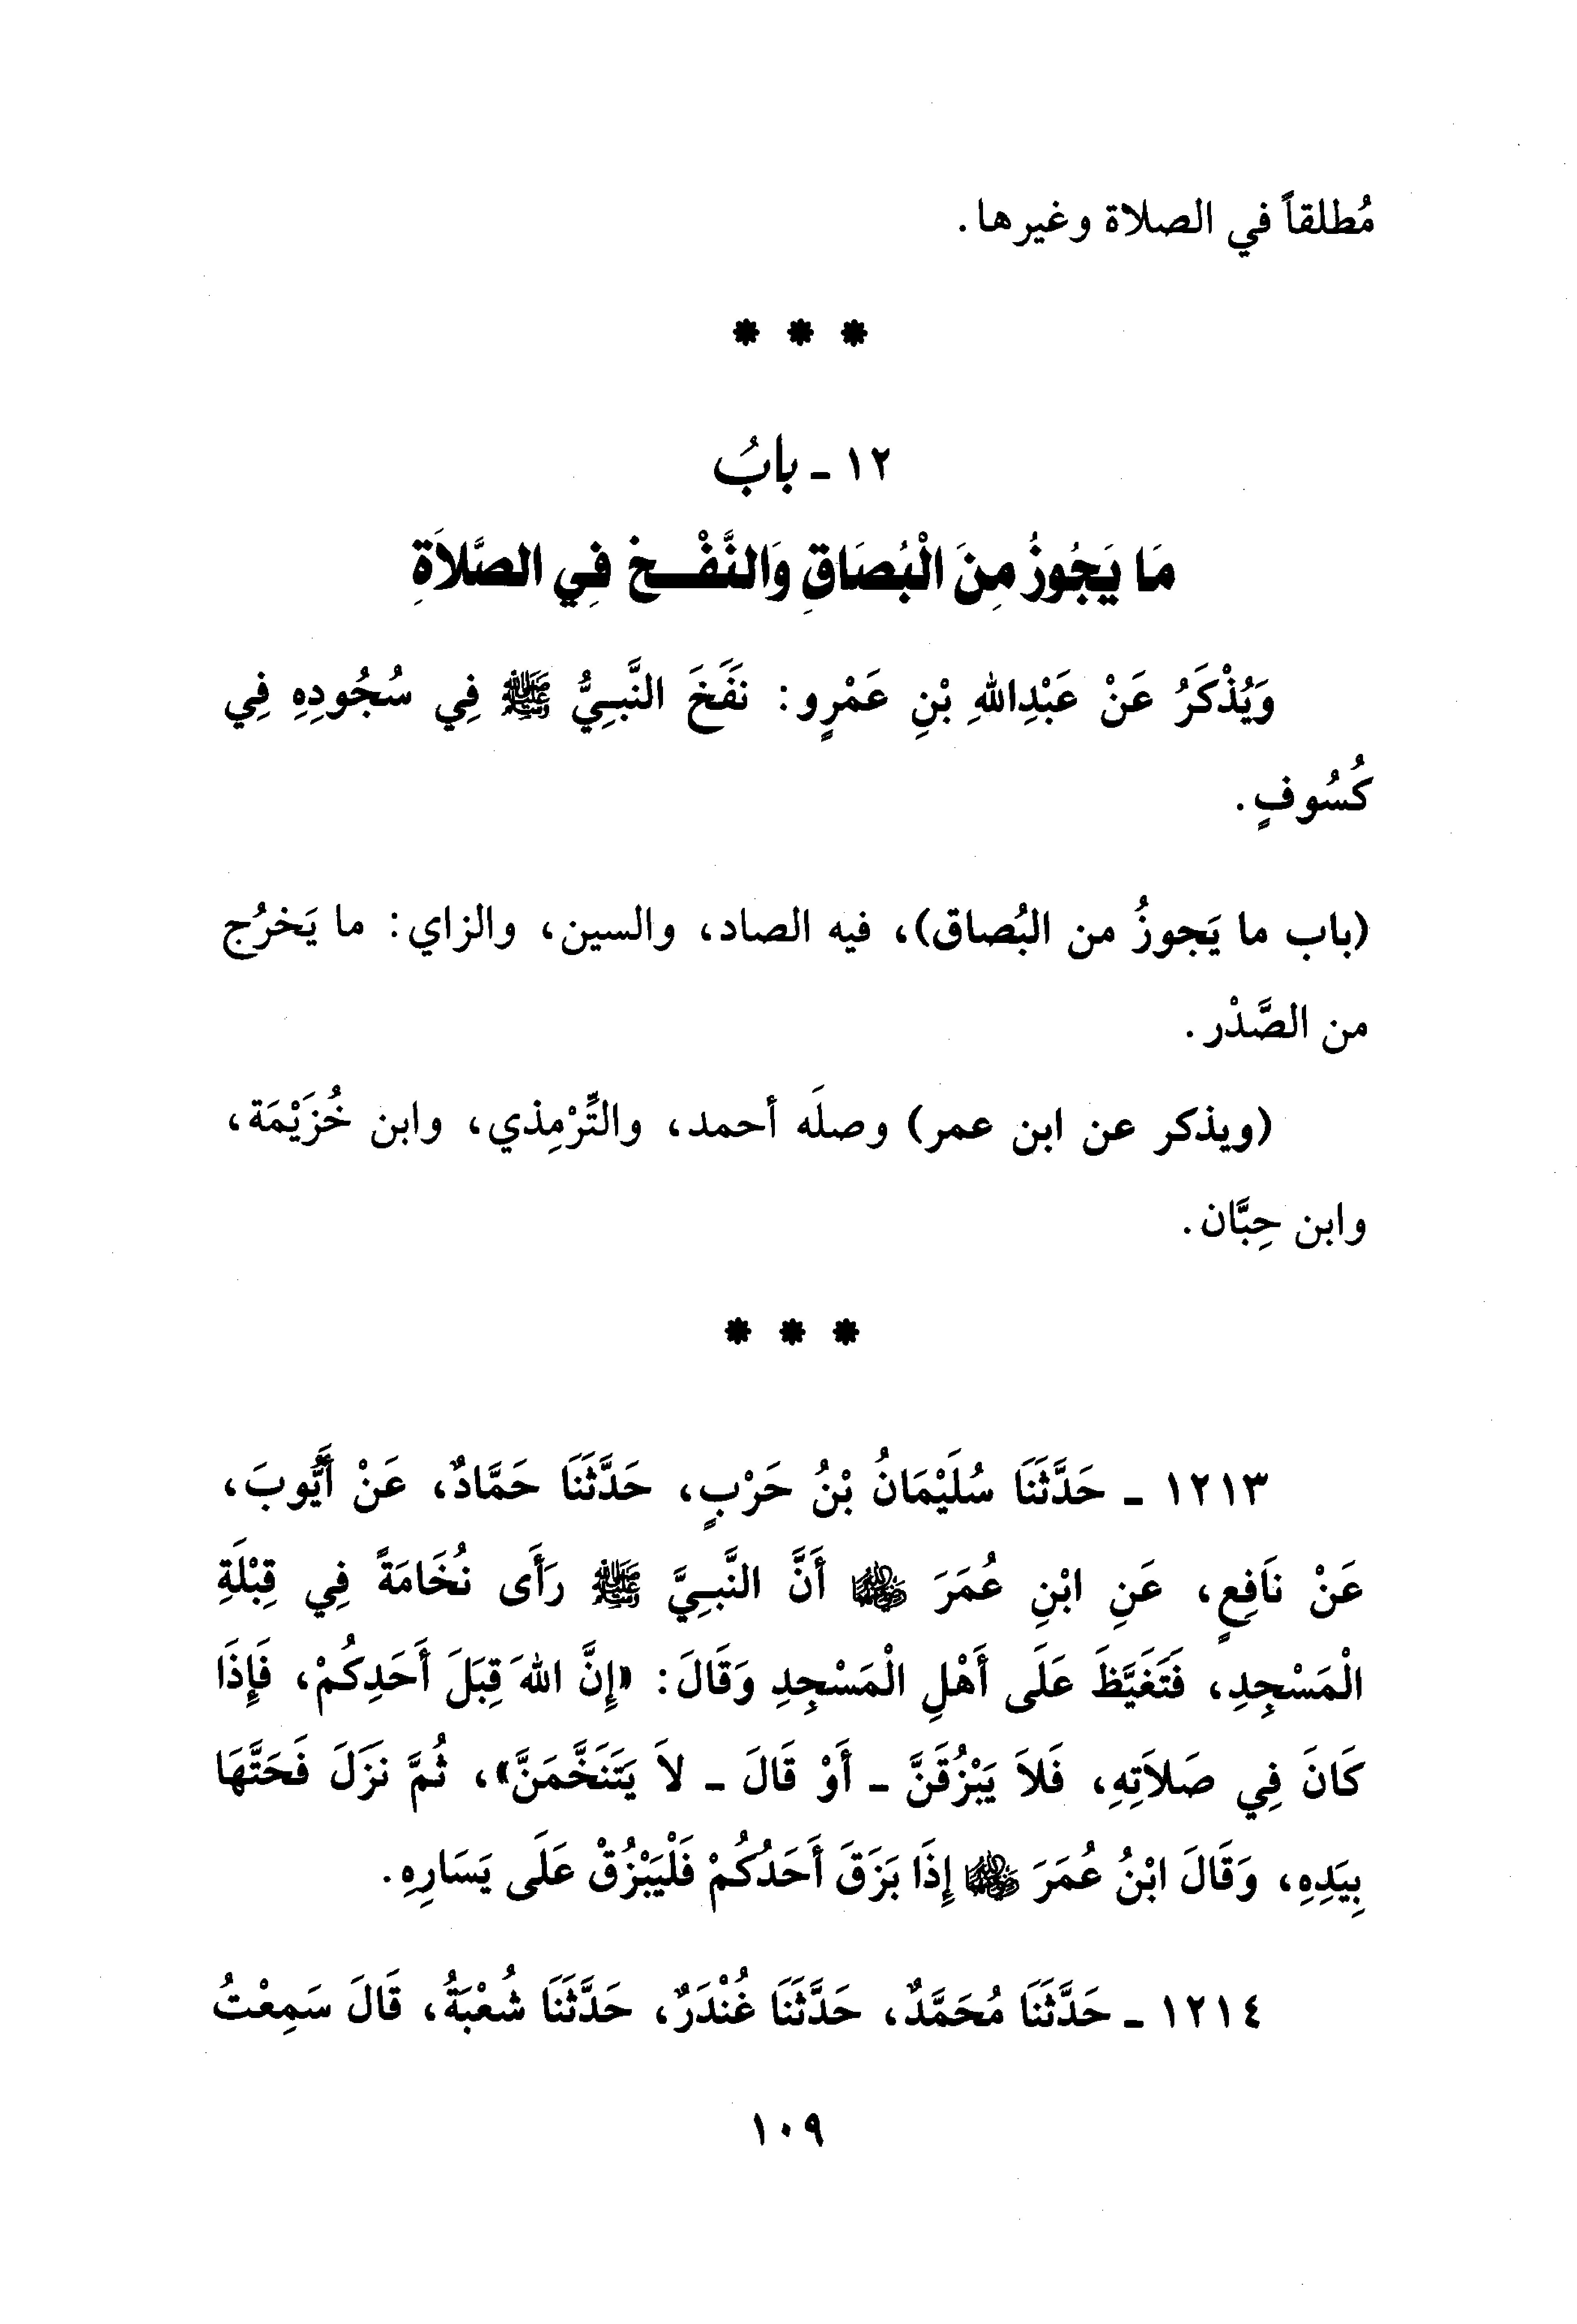 مُطلقاً في الصلاة وغيرها.
* * *
١٢ - بابُ
مَا يَجُوزُ مِنَ الْبُصَاقِ وَالنَّفْـخِ فِي الصَّلاَةِ
وَيُذْكَرُ عَنْ عَبْدِاللهِ بْنِ عَمْرٍو: نَفَخَ النَّبِيُّ ﷺ فِي سُجُودِهِ فِي
كُسُوفٍ.
(باب ما يَجوزُ من البُصاق)، فيه الصاد، والسين، والزاي: ما يَخرُج
من الصَّدْر.
(ويذكر عن ابن عمر) وصلَه أحمد، والتِّرْمِذي، وابن خُزَيْمَة،
وابن حِبَّان.
* * *
١٢١٣ - حَدَّثَنَا سُلَيْمَانُ بْنُ حَرْبٍ، حَدَّثَنَا حَمَّادٌ، عَنْ أَيُّوبَ،
عَنْ نَافِعٍ، عَنِ ابْنِ عُمَرَ ﵄ أَنَّ النَّبِيَّ ﷺ رَأَى نُخَامَةً فِي قِبْلَةِ
الْمَسْجِدِ، فَتَغَيَّظَ عَلَى أَهْلِ الْمَسْجِدِ وَقَالَ: «إِنَّ اللهَ قِبَلَ أَحَدِكُمْ، فَإِذَا
كَانَ فِي صَلاَتِهِ، فَلاَ يَبْزُقَنَّ - أَوْ قَالَ - لاَ يَتَنَخَّمَنَّ»، ثُمَّ نَزَلَ فَحَتَّهَا
بِيَدِهِ، وَقَالَ ابْنُ عُمَرَ ﵄ إِذَا بَزَقَ أَحَدُكُمْ فَلْيَبْزُقْ عَلَى يَسَارِهِ.
١٢١٤ - حَدَّثَنَا مُحَمَّدٌ، حَدَّثَنَا غُنْدَرٌ، حَدَّثَنَا شُعْبَةُ، قَالَ سَمِعْتُ
١٠٩